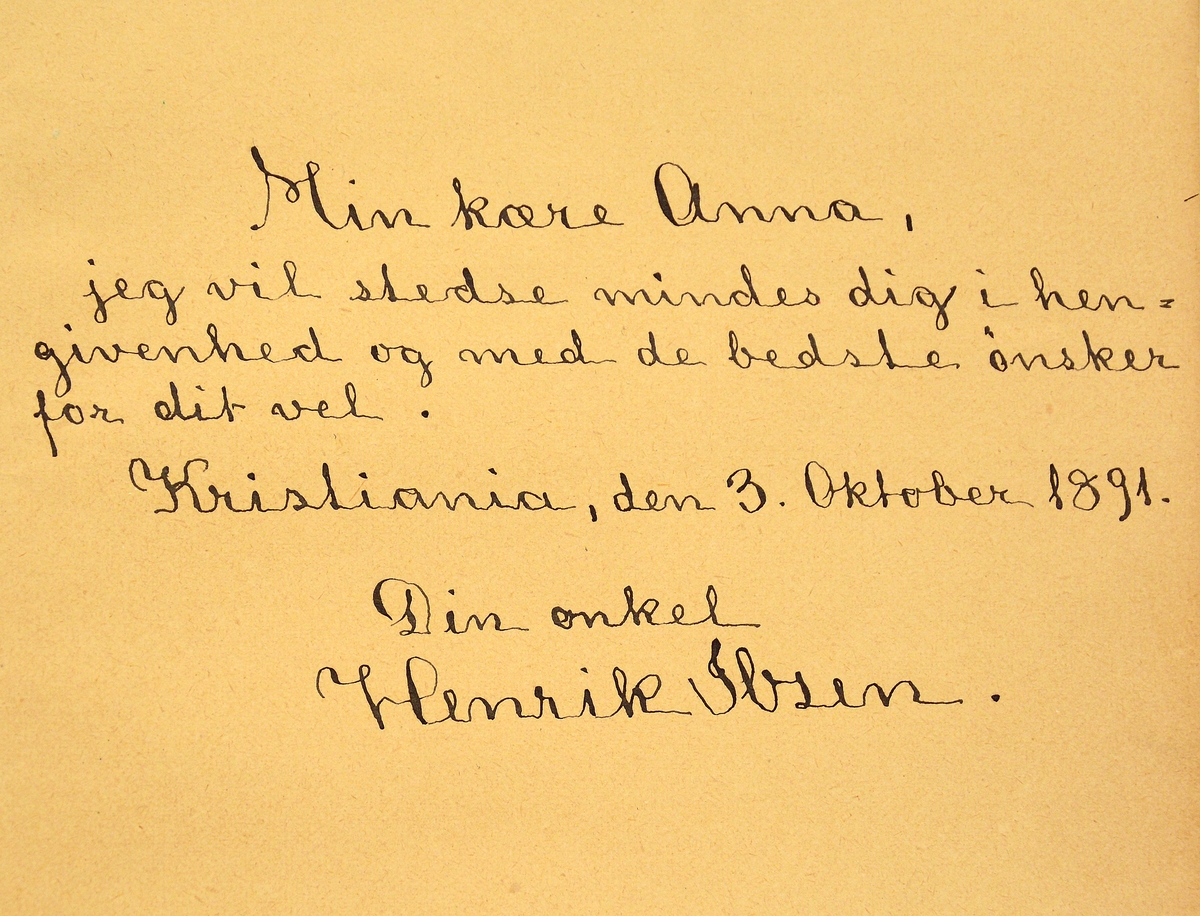 Min kære Anna,
jeg vil stedse mindes dig i hen=
givenhed og med de bedste önsker
for dit vel.
Kristiania, den 3. Oktober 1891.
Din onkel
Henrik Ibsen.